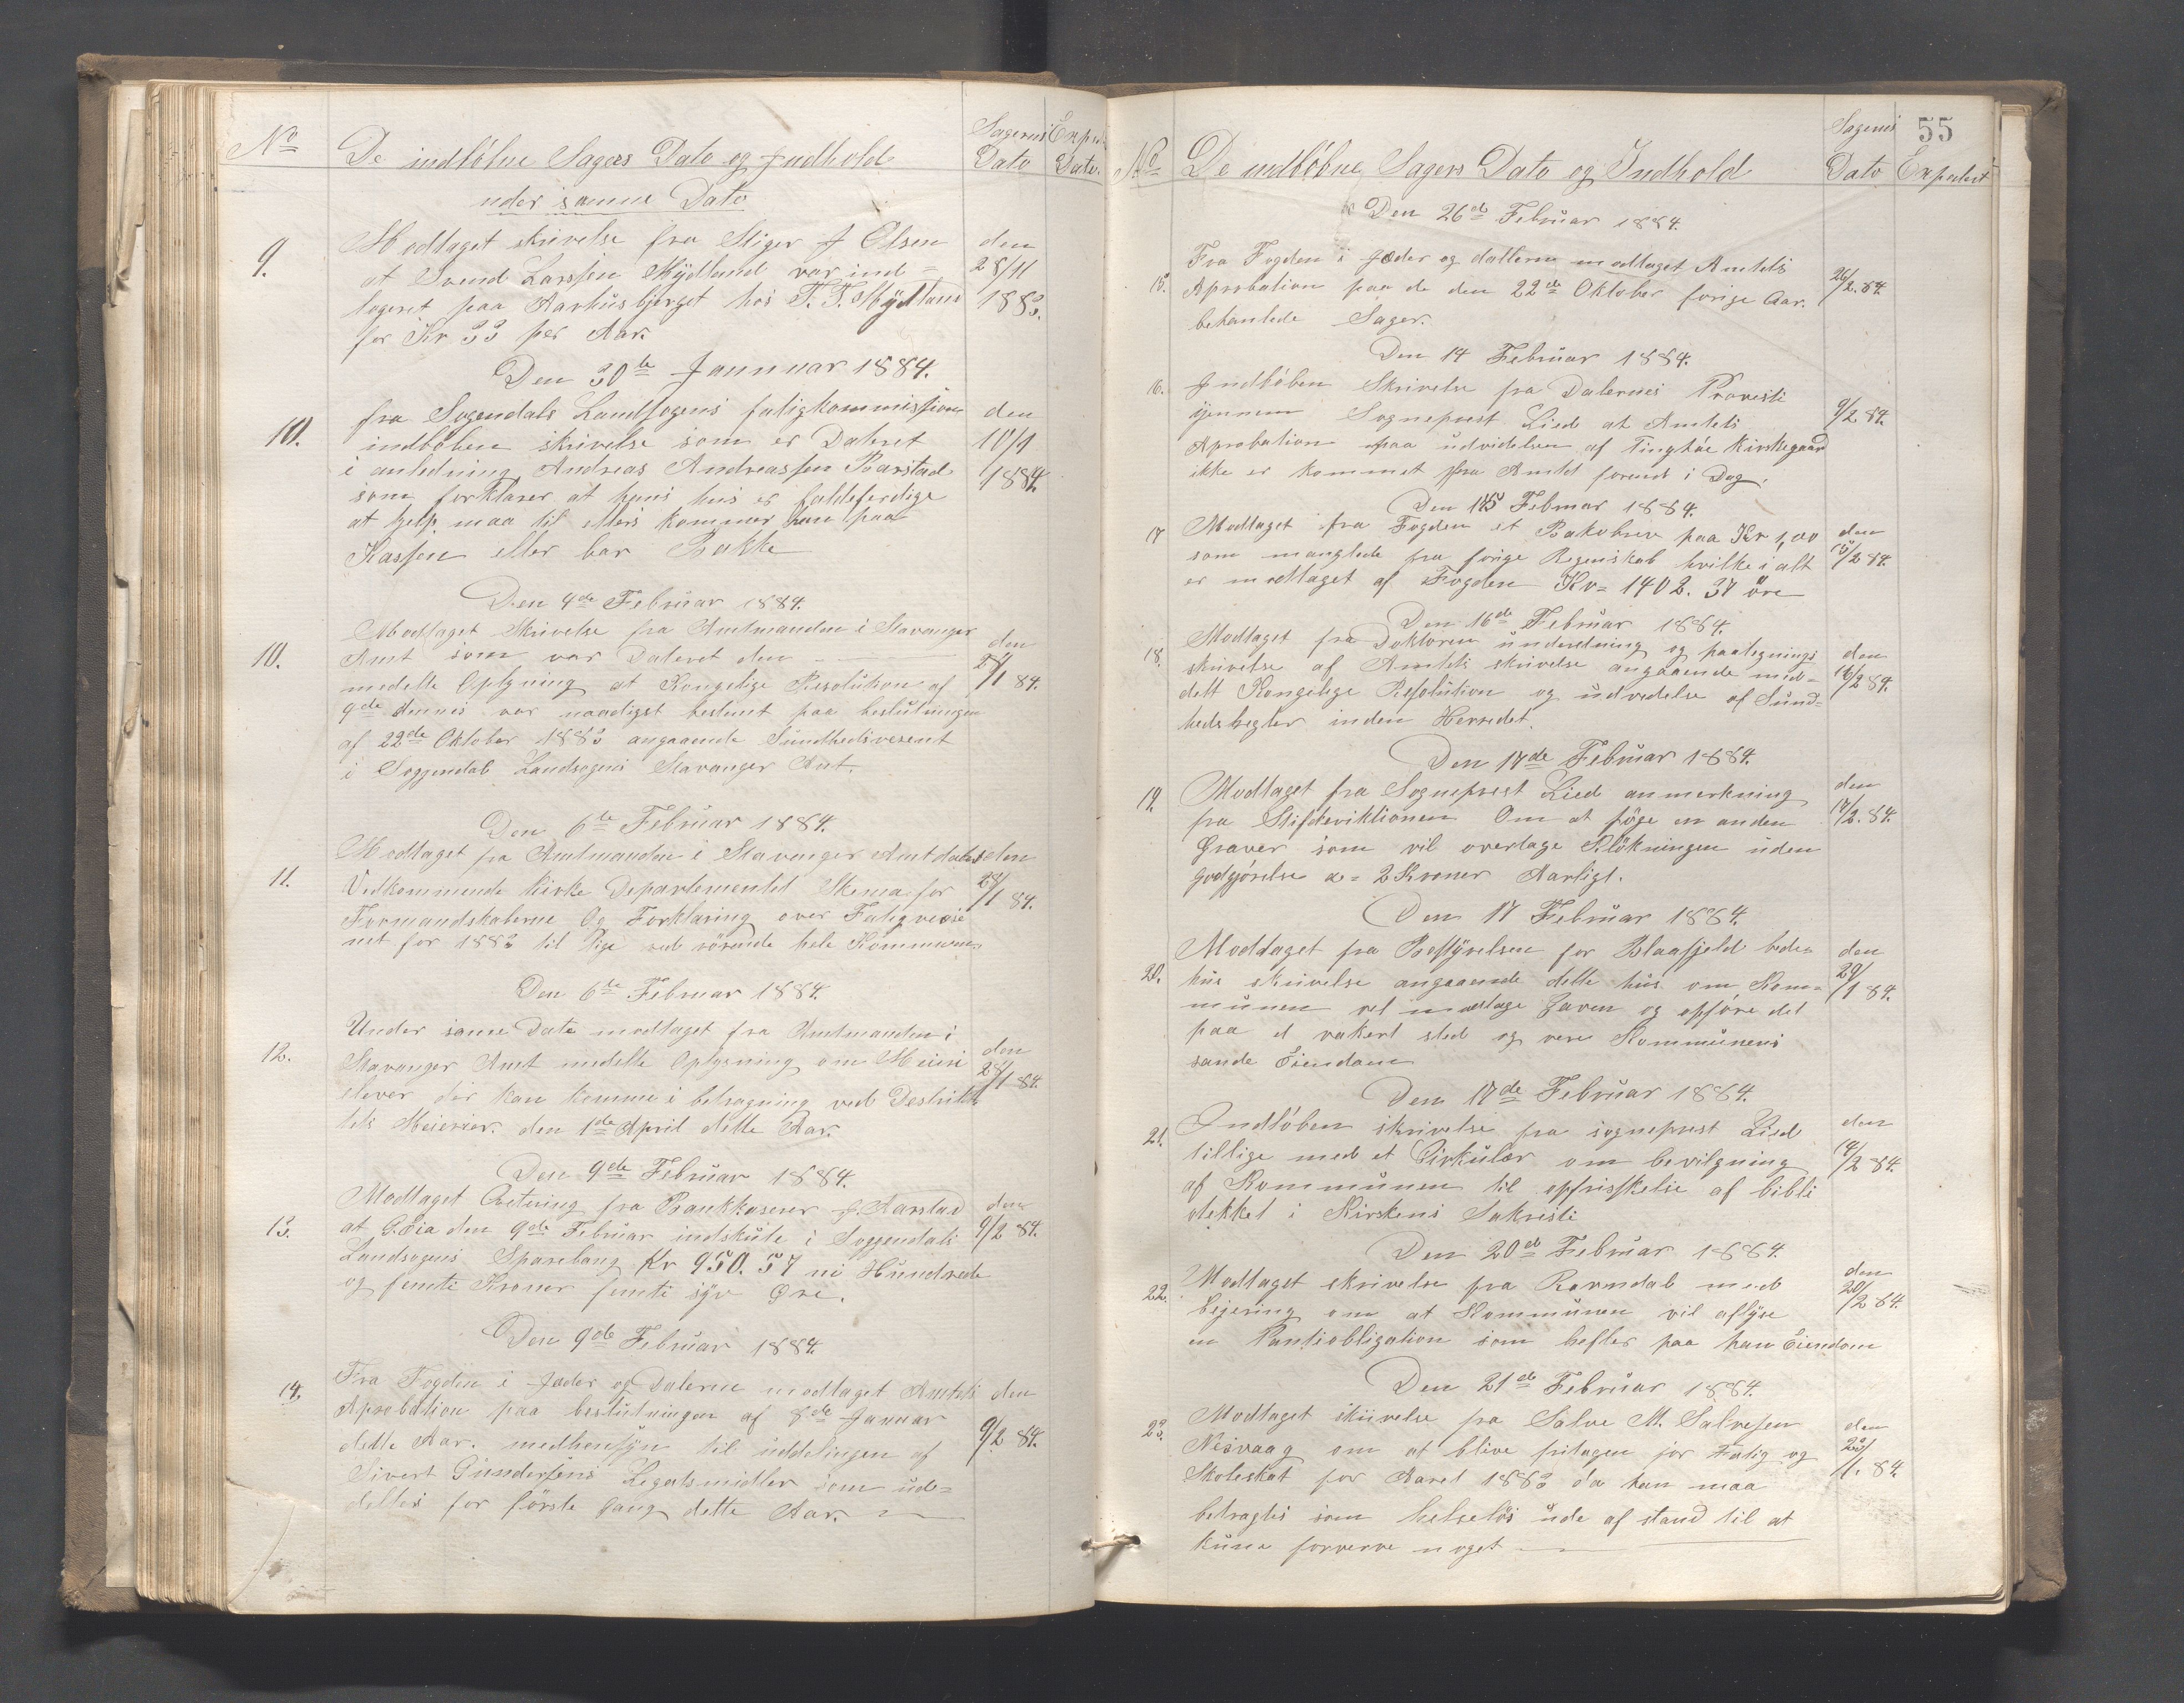 No De indløbne Sagers Dato og Indhold Sagens Dato Exped. Dato.
under samme Dato
9. Modtaget skrivelse fra Stiger J Olsen den
at Svend Larssen Mydland var ind= 28/11
logeret paa Aarhusbjerget hos T. T. Mydland 1883.
for Kr 33 per Aar.
Den 30te Jannuar 1884.
10. fra Sogendals Landsogens fatigkommission den
indløben skrivelse som er Dateret 10/1
i anledning Andreas Andreassen Barstad 1884.
som forklarer at hans hus er faldeferdige
at hjelp maa til ellers kommer han paa
Kassen eller bar Bakke
Den 4de Februar 1884.
10. Modtaget Skrivelse fra Amtmanden i Stavanger den
Amt som var Dateret den 28/1 84.
medelte Oplysning at Kongelige Resolution af
9de dennes var naadigst bestemt paa beslutningen
af 22de Oktober 1883 angaaende Sundhedsvesent
i Soggendals Landsogens Stavanger Amt.
Den 6te Februar 1884.
11. Modtaget fra Amtmanden i Stavanger Amt datert den
Vedkommende Kirke Departementet Skema for 28/1 84.
Formandskaberne Og Forklaring over Fatigvese
net for 1883 til lige ved rørende hele Kommunen
Den 6te Februar 1884.
12. Under samme Dato modtaget fra Amtmanden i
Stavanger Amt medelte Oplysning om Meieri den
elever der kan komme i betragning ved Destrikt 28/1 84.
tets Meierier. den 1de April dette Aar.
Den 9de Februar 1884.
13. Modtaget Qvetering fra Bankkaserer J. Aarstad den
at G. Eia den 9de Februar indskute i Soggendals 9/2 84.
Landsogens Sparebang Kr 950.57 ni Hundrede
og femti Kroner femti syv Øre.
Den 9de Februar 1884.
14. Fra Fogden i Jæder og Dalerne modtaget Amtets den
Aprobation paa beslutningen af 8de Januar 9/2 84.
dette Aar. medhensyn til uddelingen af
Sivert Gundersens Legatsmidler som ud=
deltes for første Gang dette Aar.
55
No De indløbne Sagers Dato og Indhold Sagens Dato Expedert
Den 26de Februar 1884.
15. Fra Fogden i Jæder og dallerne modtaget Amtets 26/2. 84.
Aprobation paa de den 22de Oktober forige Aar.
behanlede Sager.
Den 14 Februar 1884.
16. Indløben Skrivelse fra Dalernes Provesti 9/2 84.
gjennem Sogneprest Lied at Amtets
Aprobation paa udvidelsen af Tinghøe Kirkegaard
ikke er kommet fra Amtet forend i Dag.
Den 15 Februar 1884.
17 Modtaget fra Fogden et Bakobrev paa Kr 1,00 den
som manglede fra forige Regenskab hvilke i alt 15/2 84.
er modtaget af Fogden Kr= 1402. 37 öre
Den 16de Februar 1884.
18. Modtaget fra Doktoren underetning og paategnings den
skrivelse af Amtets skrivelse angaaende med= 16/2 84.
delt Kongelige Resolution og udvedelse af Sund=
hedsregler inden Herredet.
Den 17de Februar 1884.
19. Modtaget fra Sogneprest Lied anmerkning den
fra Stifdereiktionen Om at føge en anden 17/2. 84.
Graver som vil overtage Klokningen uden
godgjørelse a= 2 Kroner Aarligt.
Den 17 Februar 1884.
20. Moddaget fra Bestyrelsen for Blaafjeld bede= den
hus skrivelse angaaende dette hus om Kom= 29/1 84.
munen vil modtage Gaven og opføre det
paa et vakert sted og vere Kommunens
sande Eiendom
Den 17de Februar 1884.
21. Indløben skrivelse fra sogneprest Lied den
tillige med et Cirkulær om bevilgning 14/2 84.
af Kommunen til opfriskelse af bibli
oteket i Kirkens Sakresti
Den 20de Februar 1884.
22. Modtaget skrivelse fra Ravndal med den
begjering om at Kommunen vil aflyse 20/2 84.
en Pantiobligation som hefter paa han Eiendom
Den 21de Februar 1884.
23. Modtaget skrivelse fra Salve M. Salvesen den
Nesvaag om at blive fritagen for Fatig og 23/1. 84.
Skoleskat for Aaret 1883 da han maa
betragtes som helseløs ude af stand til at
kune forverve noget